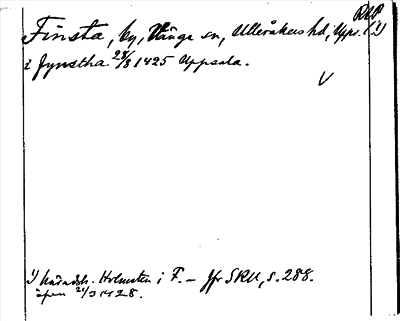 RAP
Finsta, by, Vänge sn, Ulleråkers hd, Upps. l. 1)
i fynstha 28/8 1425 Uppsala.
V
1) Häradsh. Holmsten i F. – Jfr SRU, s. 288.
öpen 21/3 1428.